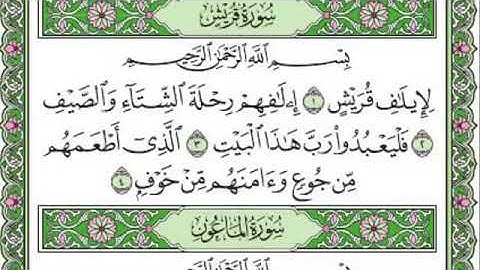 سُورَةُ قُرَيْشٍ
بِسْمِ ٱللَّهِ ٱلرَّحْمَٰنِ ٱلرَّحِيمِ
لِإِيلَٰفِ قُرَيْشٍ ١ إِۦلَٰفِهِمْ رِحْلَةَ ٱلشِّتَآءِ وَٱلصَّيْفِ
٢ فَلْيَعْبُدُوا۟ رَبَّ هَٰذَا ٱلْبَيْتِ ٣ ٱلَّذِىٓ أَطْعَمَهُم
مِّن جُوعٍ وَءَامَنَهُم مِّنْ خَوْفٍۭ ٤
سُورَةُ ٱلْمَاعُونِ
بِسْمِ ٱللَّهِ ٱلرَّحْمَٰنِ ٱلرَّحِيمِ